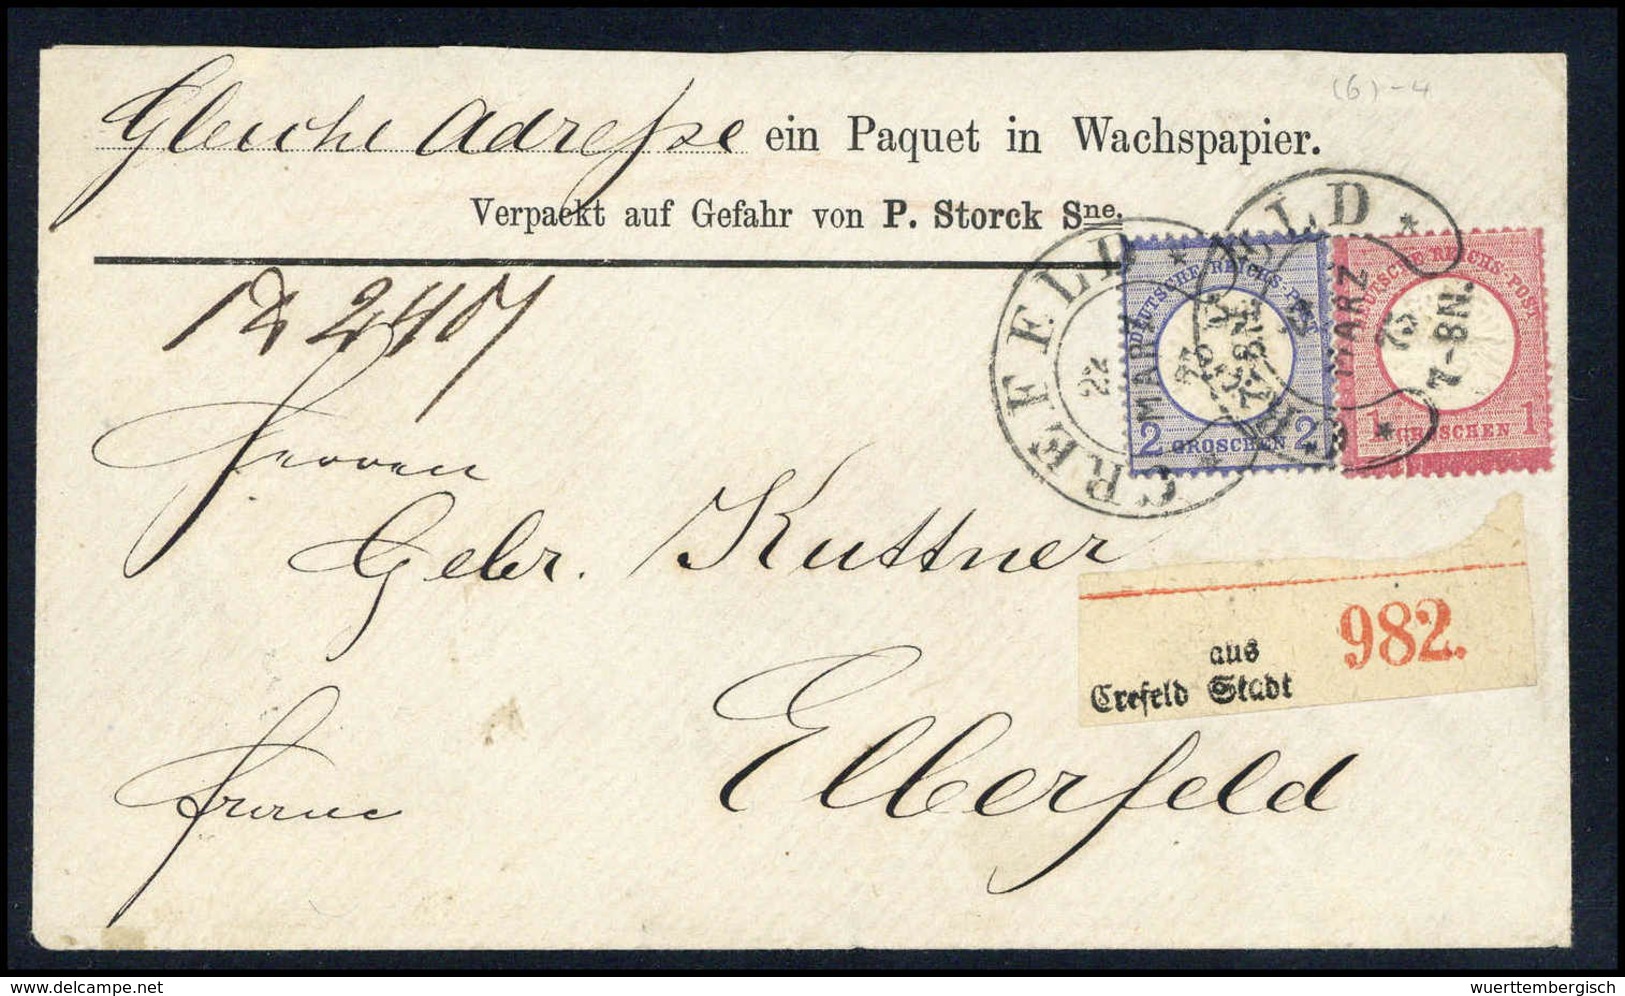 (6)-4
Gleiche Adresse ein Paquet in Wachspapier.
Verpackt auf Gefahr von P. Storck Sne.
CREFELD
22 MARZ 73
7-8N.
CREFELD
MARZ 73
7-8N.
DEUTSCHE REICHS-POST
2 GROSCHEN 2
DEUTSCHE REICHS-POST
1 GROSCHEN 1
Herren
Gebr. Kuttner
982.
aus
Crefeld Stadt
Elberfeld
franco
delcampe.net
wuerttembergisch